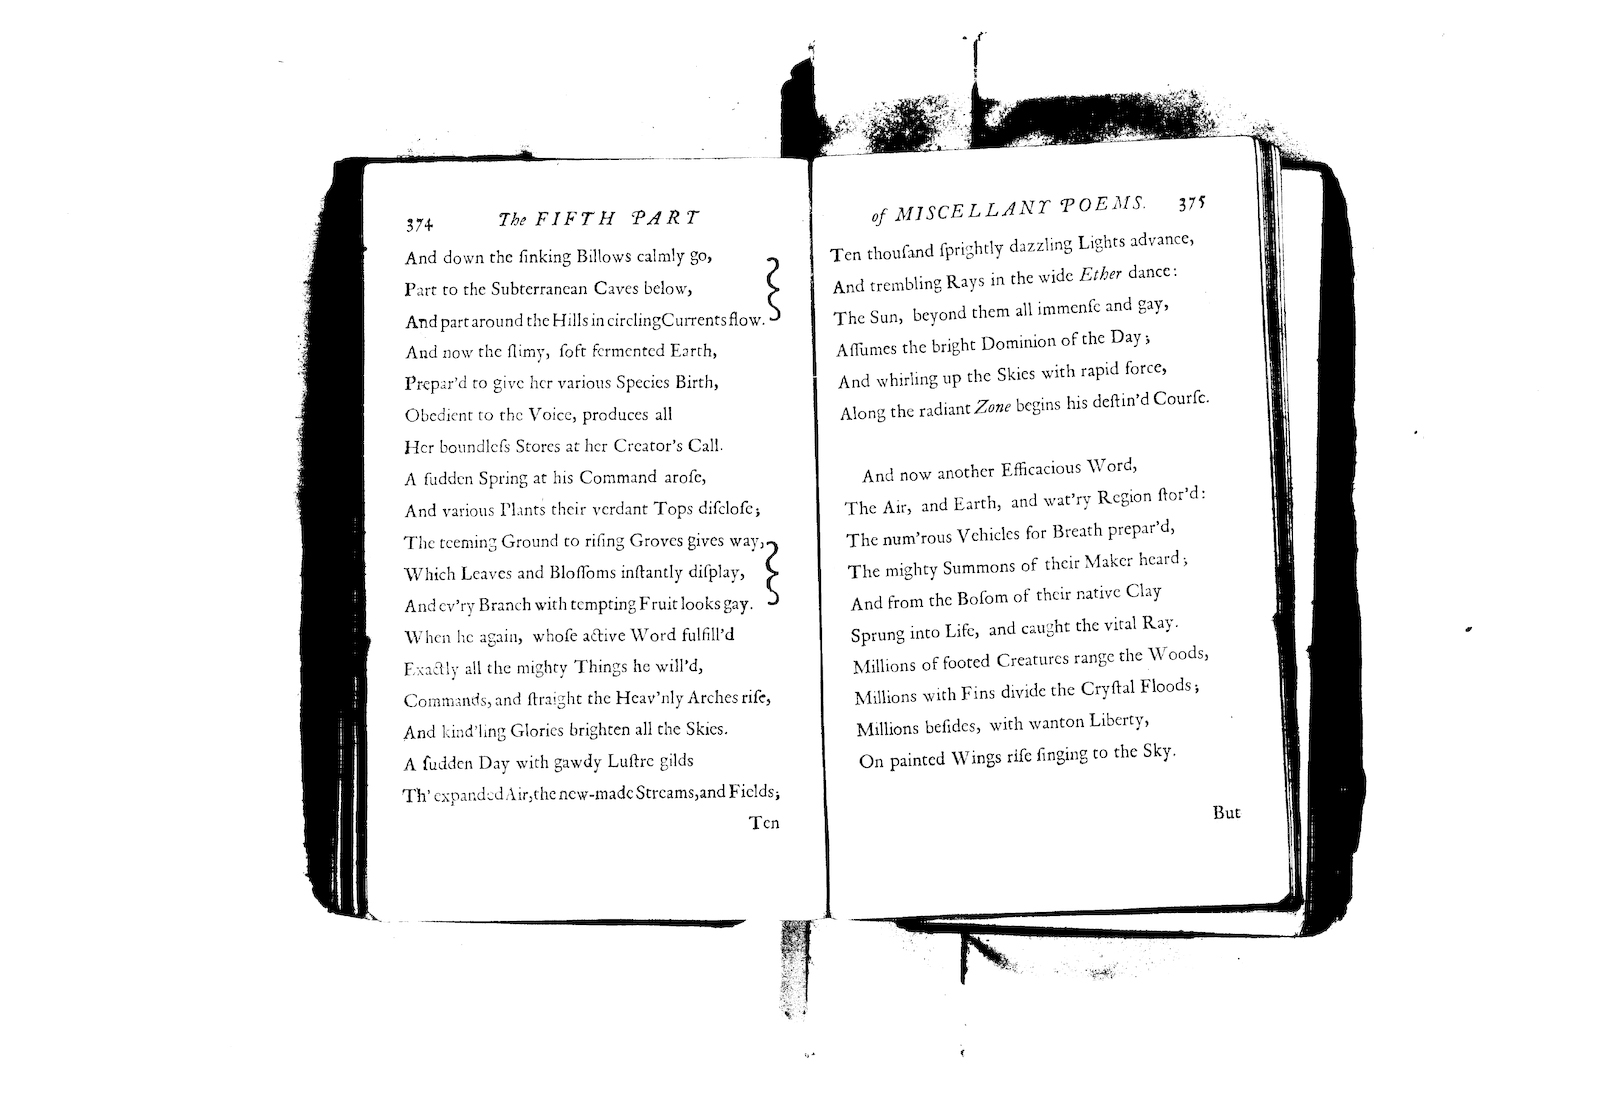 374 The FIFTH PART
And down the ſinking Billows calmly go,
Part to the Subterranean Caves below,
And part around the Hills in circling Currents flow.
And now the ſlimy, ſoft fermented Earth,
Prepar'd to give her various Species Birth,
Obedient to the Voice, produces all
Her boundleſs Stores at her Creator's Call.
A ſudden Spring at his Command aroſe,
And various Plants their verdant Tops diſcloſe;
The teeming Ground to riſing Groves gives way,
Which Leaves and Bloſſoms inſtantly diſplay,
And ev'ry Branch with tempting Fruit looks gay.
When he again, whoſe active Word fulfill'd
Exactly all the mighty Things he will'd,
Commands, and ſtraight the Heav'nly Arches riſe,
And kind'ling Glories brighten all the Skies.
A ſudden Day with gawdy Luſtre gilds
Th' expanded Air, the new-made Streams, and Fields;
Ten
of MISCELLANY POEMS. 375
Ten thouſand ſprightly dazzling Lights advance,
And trembling Rays in the wide Ether dance:
The Sun, beyond them all immenſe and gay,
Aſſumes the bright Dominion of the Day;
And whirling up the Skies with rapid force,
Along the radiant Zone begins his deſtin'd Courſe.
And now another Efficacious Word,
The Air, and Earth, and wat'ry Region ſtor'd:
The num'rous Vehicles for Breath prepar'd,
The mighty Summons of their Maker heard;
And from the Boſom of their native Clay
Sprung into Life, and caught the vital Ray.
Millions of footed Creatures range the Woods,
Millions with Fins divide the Cryſtal Floods;
Millions beſides, with wanton Liberty,
On painted Wings riſe ſinging to the Sky.
But